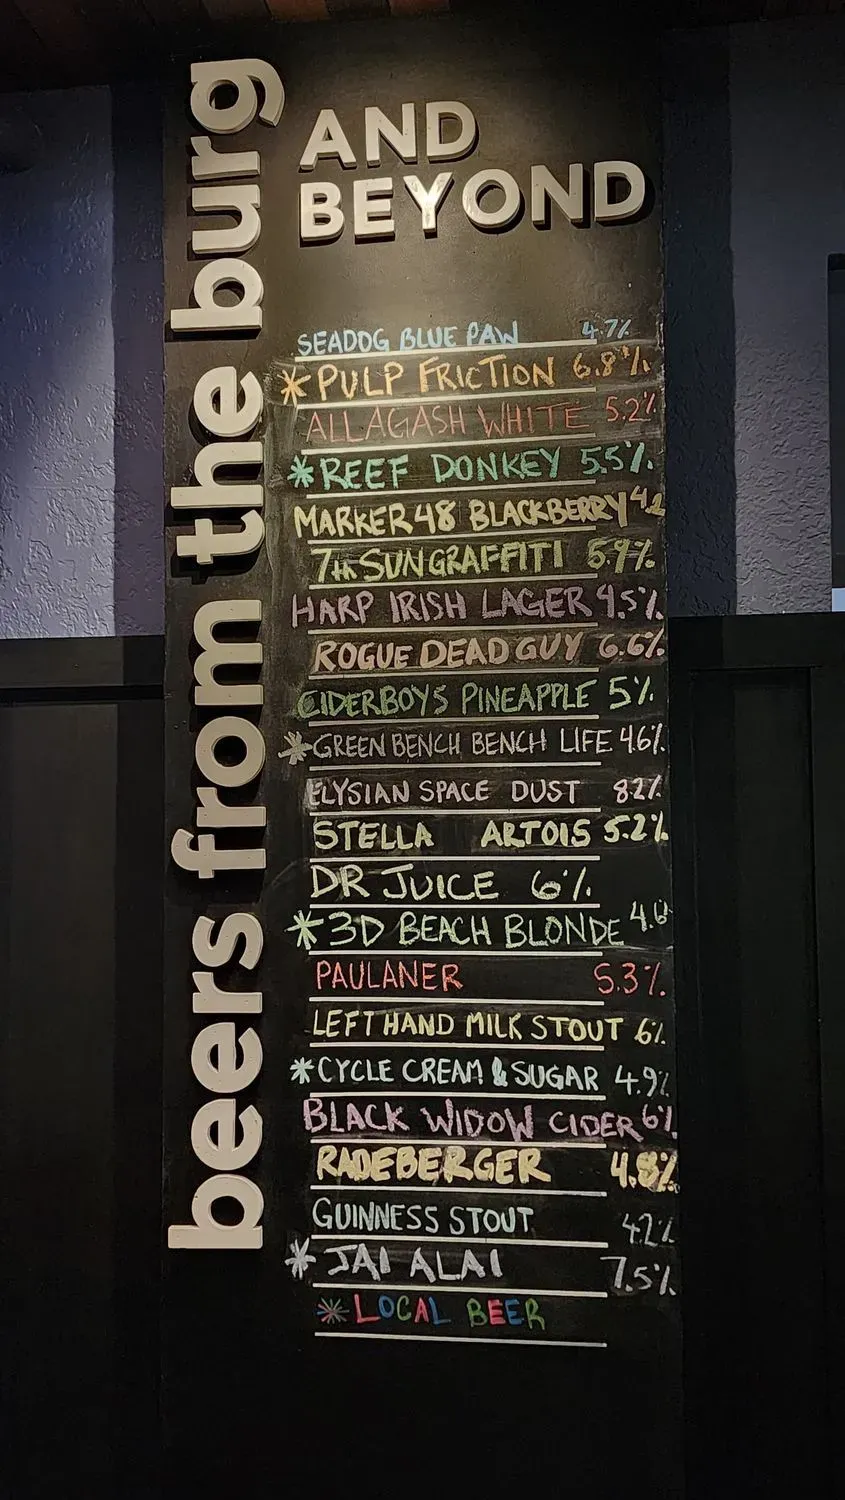 beers from the burg
AND
BEYOND
SEADOG BLUE PAW 4.7%
* PULP FRICTION 6.8%
ALLAGASH WHITE 5.2%
* REEF DONKEY 5.5%
MARKER 48 BLACKBERRY 4.2
7th SUN GRAFFITI 5.9%
HARP IRISH LAGER 4.5%
ROGUE DEAD GUY 6.6%
CIDERBOYS PINEAPPLE 5%
* GREEN BENCH BENCH LIFE 4.6%
ELYSIAN SPACE DUST 82%
STELLA ARTOIS 5.2%
DR JUICE 6%
* 3D BEACH BLONDE 4.6
PAULANER 5.3%
LEFT HAND MILK STOUT 6%
* CYCLE CREAM & SUGAR 4.9%
BLACK WIDOW CIDER 6%
RADEBERGER 4.8%
GUINNESS STOUT 4.2%
* JAI ALAI 7.5%
* LOCAL BEER